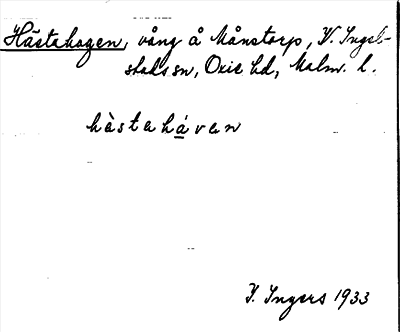 Hästahagen, vång å Månstorp, V. Ingel-
stads sn, Oxie hd, Malm. l.
hàstahávan
V. Ingers 1933